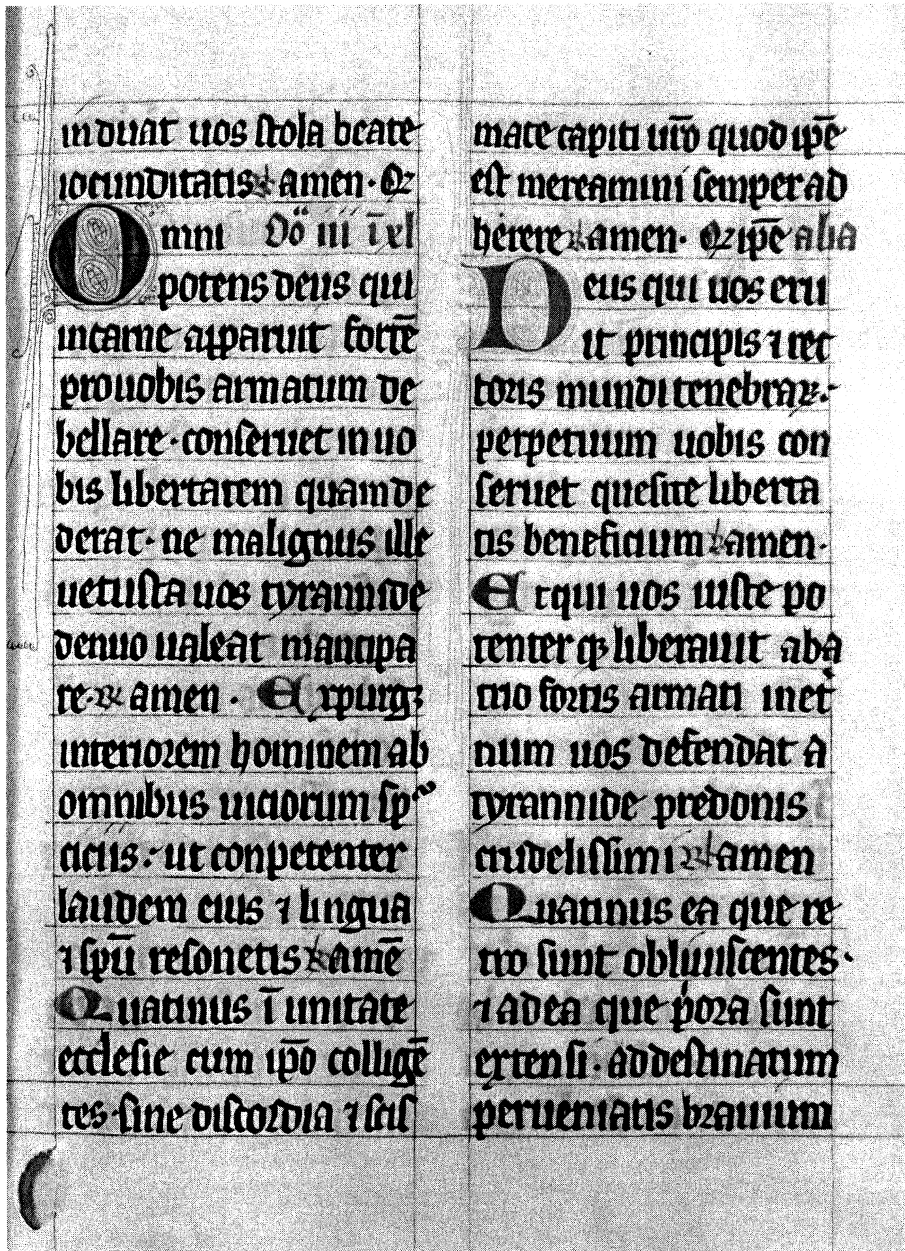 induat uos stola beate
iocunditatis ℟ amen. Qͥ
Omni Dō iii ī xl
potens deus qui
in carne apparuit fortē
pro uobis armatum de
bellare. conseruet in uo
bis libertatem quam de
derat. ne malignus ille
uetusta uos tyrannide
denuo ualeat mancipa
re. ℟ amen. Expurgꝫ
interiorem hominem ab
omnibus uiciorum sp
aciis: ut conpetenter
laudem eius ⁊ lingua
⁊ spū resonetis ℟ amē
Quatinus ī unitate
ecclesie cum ipō colligē
tes. sine discordia ⁊ scis
mate capiti uro̅ quod ipē
est mereamini semper ad
herere ℟ amen. Qꝫ ipē aba
Deus qui uos eru
it principis ⁊ rec
toris mundi tenebraꝝ:
perpetuum uobis con
seruet quesite liberta
tis beneficium ℟ amen.
Et qui uos iuste po
tenter qꝫ liberauit aba
trio fortis armati in et̉
num uos defendat a
tyrannide predonis
crudelissimi ℟ amen
Quatinus ea que re
tro sunt obliuiscentes.
⁊ ad ea que pͥora sunt
extensi. ad destinatum
perueniatis brauium